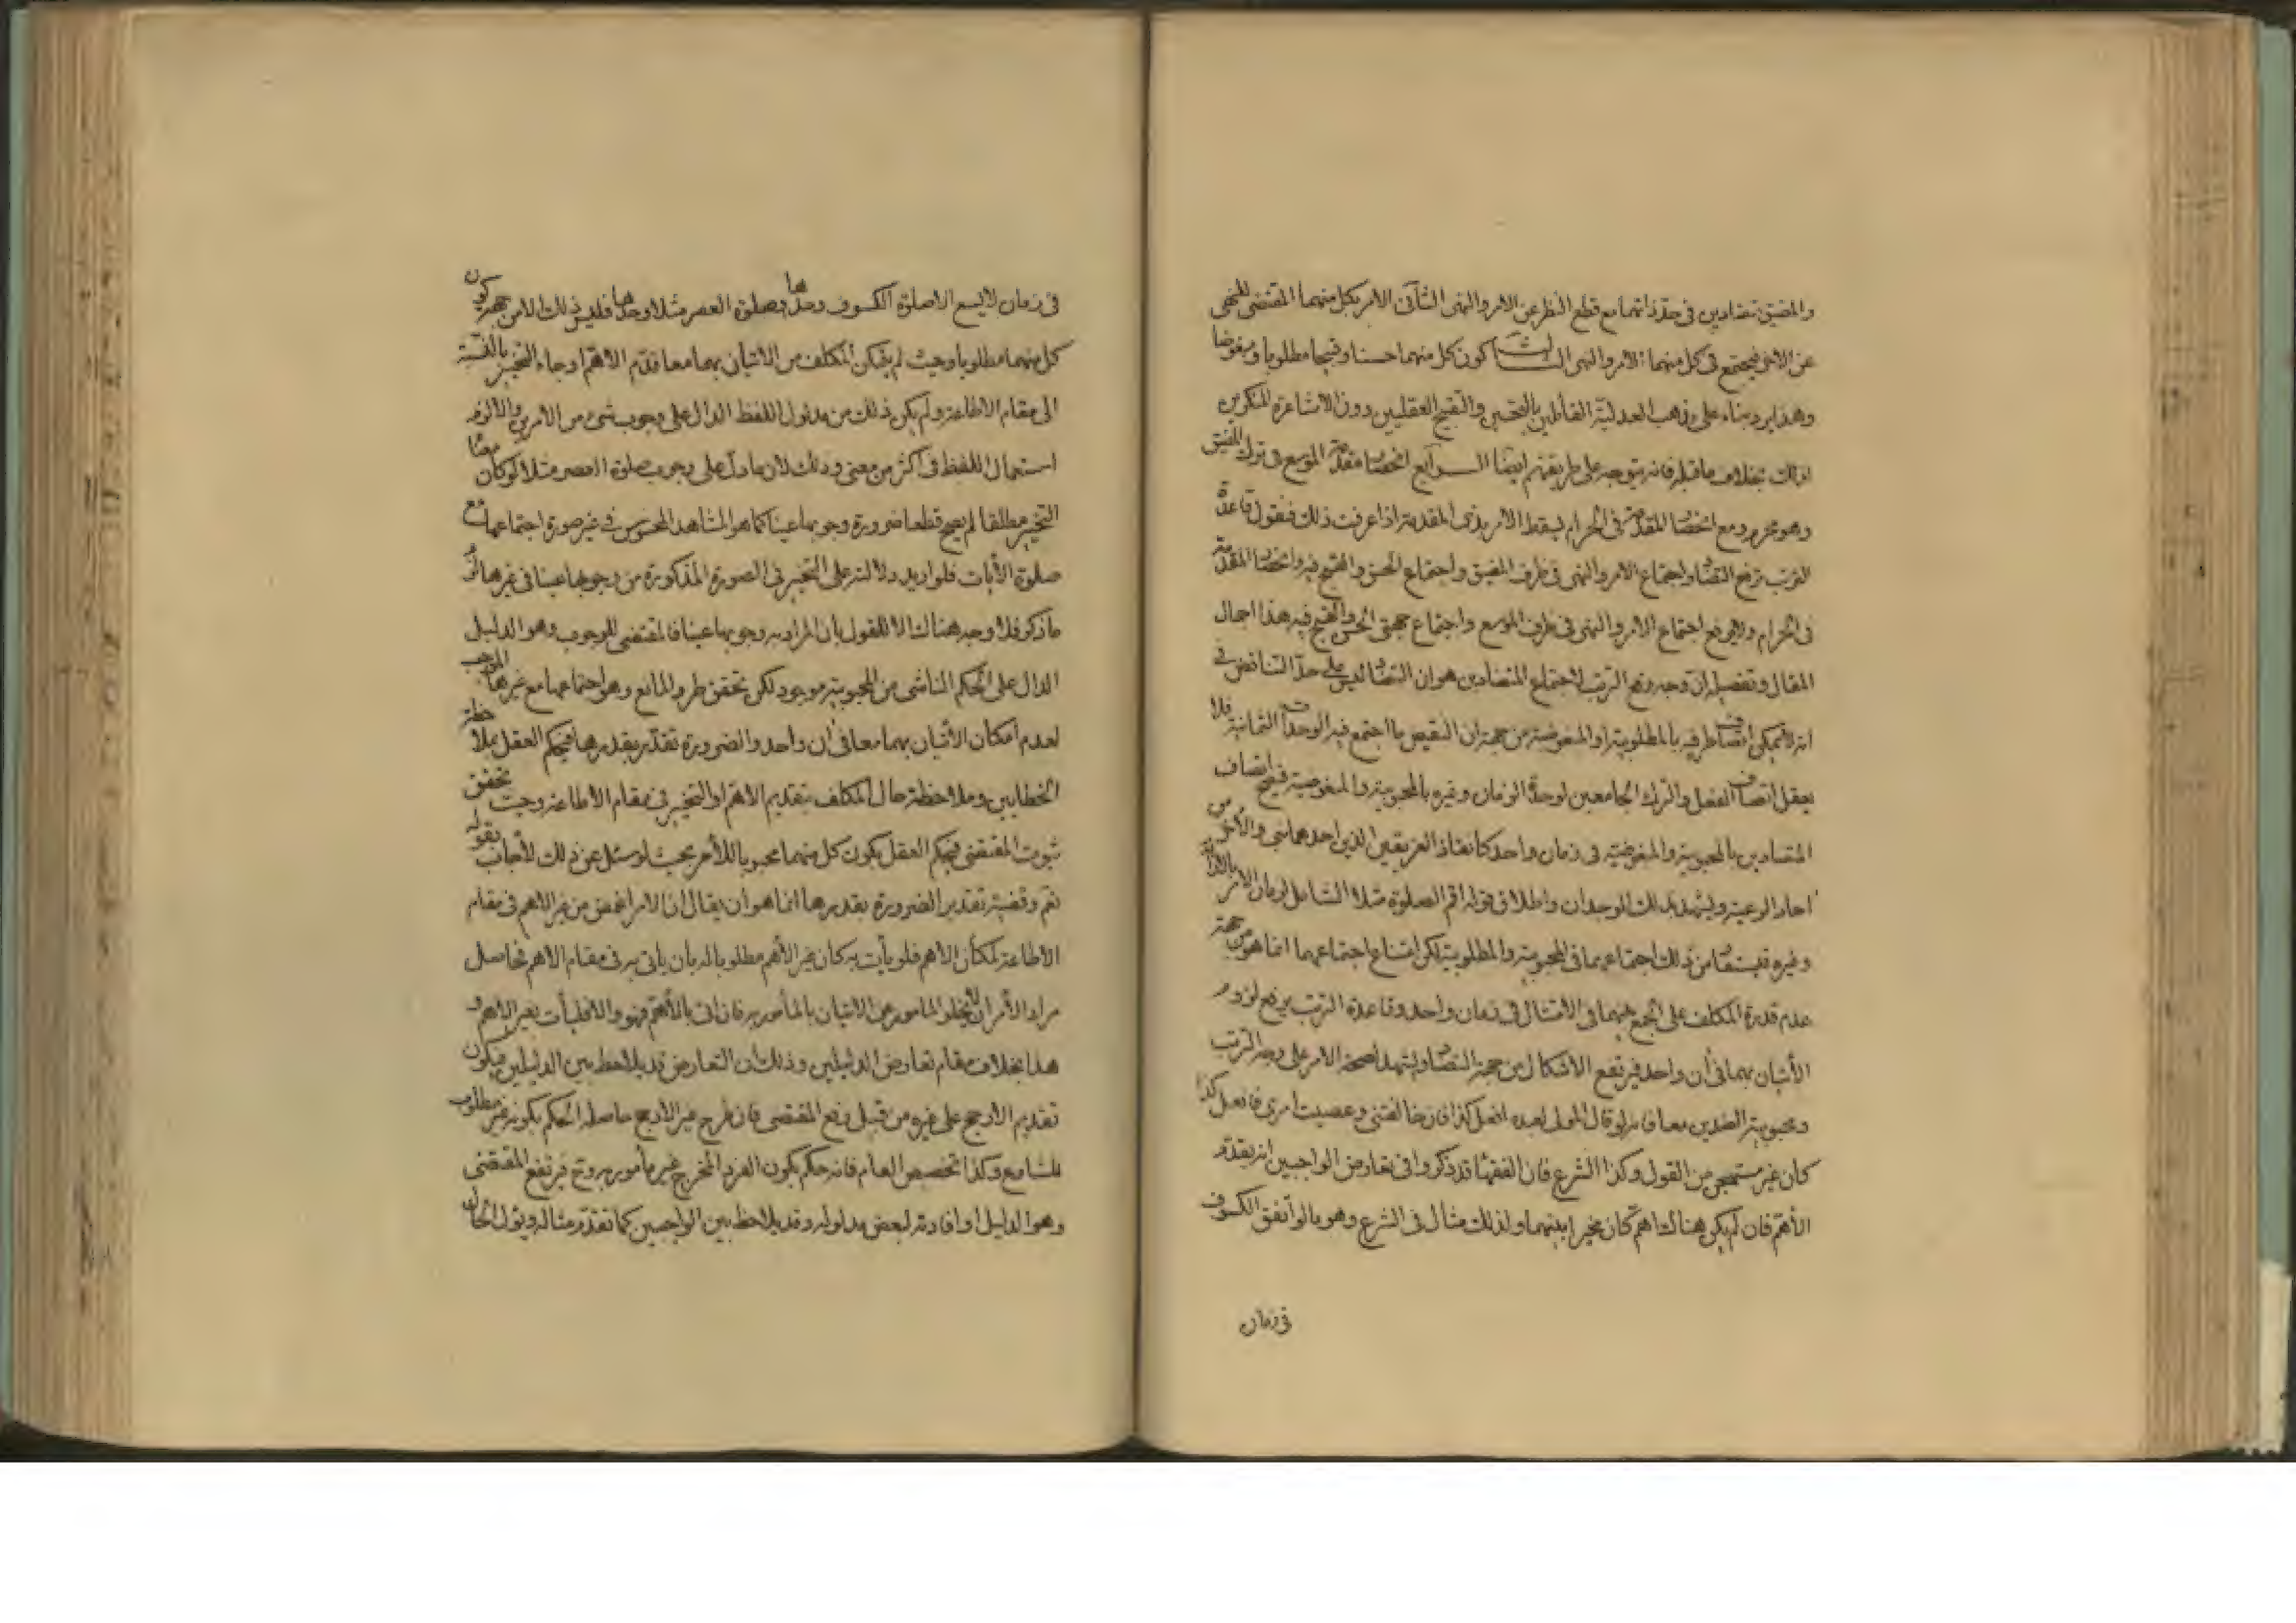 والمضيق متضادين في حد ذاتهما مع قطع النظر عن الامر والنهى الثانى الامر بكل منهما المقتضى للنهى
عن الاخر فيجتمع في كل منهما الامر والنهى الثالث كون كل منهما حسنا وقبيحا مطلوبا ومبغوضا
وهذا يرد بناء على مذهب العدلية القائلين بالتحسين والتقبيح العقليين دون الاشاعرة المنكرين
لذلك بخلاف ما قبله فانه يتوجه على طريقتهم ايضا الرابع انحصار مقدمة الموسع في ترك المضيق
وهو محرم ومع انحصار المقدمة في الحرام يسقط الامر بذى المقدمة اذا عرفت ذلك فنقول قاعدة
الترتب ترفع التضاد واجتماع الامر والنهى في طرف المضيق واجتماع الحسن والقبح فيه وانحصار المقدمة
في الحرام ولا يرفع اجتماع الامر والنهى في طرف الموسع واجتماع جهتى الحسن والقبح فيه هذا اجمال
المقال وتفصيله ان وجه رفع الترتب لاجتماع المتضادين هو ان التضاد ليس على حد التناقض في
انه لا يمكن اتصاف طرفيه بالمطلوبية او المبغوضية من جهة ان النقيض ما اجتمع فيه الوحدات الثمانية فلا
يعقل اتصاف الفعل والترك الجامعين لوحدة الزمان وغيره بالمحبوبية والمبغوضية فيصح اتصاف
المتضادين بالمحبوبية والمبغوضية في زمان واحد كانقاذ الغريقين الذين احدهما نبى والاخر من
احاد الرعية ويشهد بذلك الوجدان واطلاق قوله اقم الصلوة مثلا الشامل لزمان الامر بالازالة
وغيره فيستفاد من ذلك اجتماعهما في المحبوبية والمطلوبية لكن امتناع اجتماعهما انما هو من جهة
عدم قدرة المكلف على الجمع بينهما في الامتثال في زمان واحد وقاعدة الترتب يرفع لزوم
الأتيان بهما في أن واحد فيرتفع الاشكال من جهة التضاد ويشهد لصحة الامر على وجه الترتب
ومحبوبية الضدين معا فانه لو قال المولى لعبده افعل كذا فان خالفتنى وعصيت امرى فافعل كذا
كان غير مستهجن من القول وكذا الشرع فان الفقهاء قد ذكروا في تعارض الواجبين انه يقدم
الأهم فان لم يكن هناك اهم كان مخيرا بينهما ولذلك مثال في الشرع وهو ما لو اتفق الكسوف
في زمان
في زمان لا يسع الا صلوة الكسوف وحدها وصلوة العصر مثلا وحدها فليس ذلك الا من جهة كون
كل منهما مطلوبا وحيث لم يتمكن المكلف من الاتيان بهما معا قدم الاهم او جاء التخيير بالنسبة
الى مقام الاطاعة ولم يكن ذلك من مدلول اللفظ الدال على وجوب شىء من الامرين والا لزم
استعمال اللفظ في اكثر من معنى وذلك لان ما دل على وجوب صلوة العصر مثلا لو كان معناه
التخيير مطلقا لم يصح قطعا ضرورة وجوبها عينا كما هو المشاهد المحسوس في غير صورة اجتماعها مع
صلوة الأيات فلو اريد دلالته على التخيير في الصورة المذكورة من وجوبها عينا في غيرها لزم
ما ذكر فلا وجه هناك الا للقول بأن المراد به وجوبها عينا فالمقتضى للوجوب وهو الدليل
الدال على الحكم الناشى من المحبوبية موجود لكن تحقق طرو المانع وهو اجتماعها مع غيرها الموجب
لعدم امكان الأتيان بهما معا في أن واحد والضرورة تقدر بقدرها فيحكم العقل بملاحظة
الخطابين وملاحظة حال المكلف بتقديم الاهم او التخيير في مقام الاطاعة وحيث تحقق
ثبوت المقتضى فيحكم العقل بكون كل منهما محبوبا للأمر بحيث لو سئل عن ذلك لأجاب بقوله
نعم وقضية تقدير الضرورة بقدرها انما هو ان يقال ان الامر اغمض من غير الاهم في مقام
الأطاعة لمكان الاهم فلو يأت به كان غير الأهم مطلوبا له بان يأتى به في مقام الاهم فحاصل
مراد الأمر ان لا يخلو المامور عن الاتيان بالمأمور به فان اتى بالأهم فهو والا فليأت بغير الاهم و
هذا بخلاف مقام تعارض الدليلين وذلك ان التعارض قد يلاحظ بين الدليلين فيكون
تقديم الارجح على غيره من قبيل رفع المقتضى فان طرح غير الارجح حاصله الحكم بكونه غير مطلوب
للشارع وكذا تخصيص العام فانه حكم بكون الفرد المخرج غير مأمور به وح فيرتفع المقتضى
وهو الدليل او افادته لبعض مدلوله وقد يلاحظ بين الواجبين كما تقدم مثاله ويئول الحال